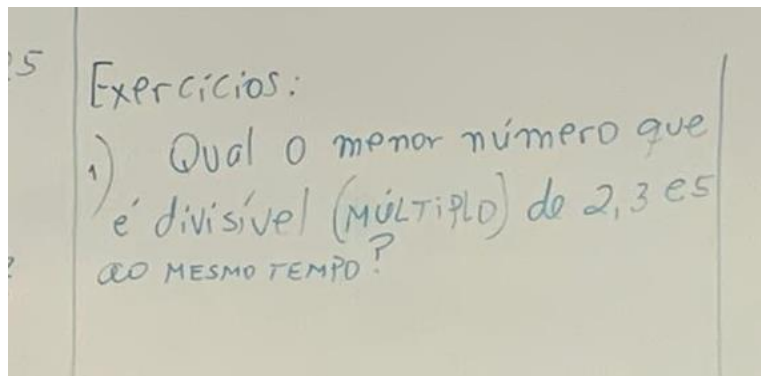 25
Exercícios:
1) Qual o menor número que
é divisível (MÚLTIPLO) de 2,3 e 5
ao MESMO TEMPO?